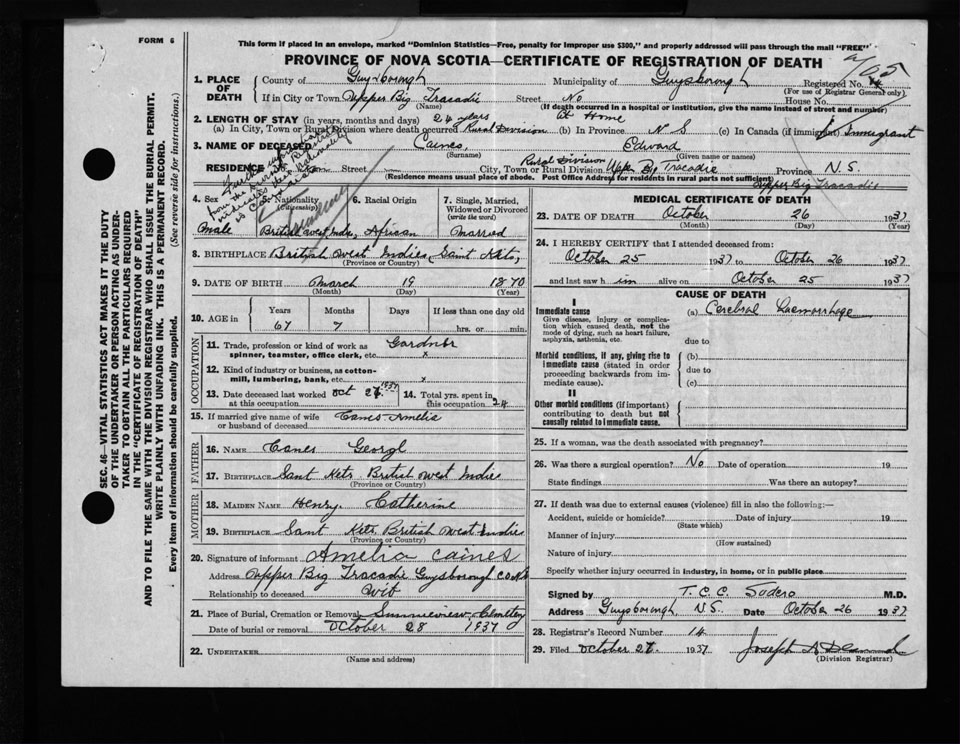 FORM 6
This form if placed in an envelope, marked "Dominion Statistics—Free, penalty for improper use $300," and properly addressed will pass through the mail "FREE"
PROVINCE OF NOVA SCOTIA—CERTIFICATE OF REGISTRATION OF DEATH
1. PLACE OF DEATH County of Guysborough Municipality of Guysborough Registered No.
(For use of Registrar General only)
If in City or Town Upper Big Tracadie Street No House No.
(Name) (If death occurred in a hospital or institution, give its name instead of street and number)
2. LENGTH OF STAY (in years, months and days) 24 years At Home
(a) In City, Town or Rural Division where death occurred Rural Division (b) In Province N S (c) In Canada (if immigrant) Immigrant
3. NAME OF DECEASED Caines, Edward
(Surname) (Given name or names)
RESIDENCE Street City, Town or Rural Division Rural Division Upper Big Tracadie Province N.S.
(Residence means usual place of abode. Post Office Address for residents in rural parts not sufficient)
Upper Big Tracadie
4. Sex 5. Nationality (Citizenship) 6. Racial Origin 7. Single, Married, Widowed or Divorced (write the word)
Male British West Indie, African Married
8. BIRTHPLACE British West Indies, Saint Kets,
(Province or Country)
9. DATE OF BIRTH March 19 1870
(Month) (Day) (Year)
10. AGE in Years Months Days If less than one day
67 7 hrs. or min.
OCCUPATION
11. Trade, profession or kind of work as spinner, teamster, office clerk, etc. Gardner x
12. Kind of industry or business, as cotton-mill, lumbering, bank, etc. x
13. Date deceased last worked at this occupation Oct 1937 14. Total yrs. spent in this occupation 24
15. If married give name of wife or husband of deceased Canes Amelia
FATHER
16. NAME Canes Georgl
17. BIRTHPLACE Sant Kets British West Indie
(Province or Country)
MOTHER
18. MAIDEN NAME Henry Catherine
19. BIRTHPLACE Sant Kets British West Indies
(Province or Country)
20. Signature of informant Amelia Caines
Address Upper Big Tracadie Guysborough Co N S
Relationship to deceased Wife
21. Place of Burial, Cremation or Removal Cemetery
Date of burial or removal October 28 1937
22. UNDERTAKER
(Name and address)
MEDICAL CERTIFICATE OF DEATH
23. DATE OF DEATH October 26 1937
(Month) (Day) (Year)
24. I HEREBY CERTIFY that I attended deceased from:
October 25 1937 to October 26 1937
and last saw him alive on October 25 1937
CAUSE OF DEATH
I
Immediate cause (a) Cerebral Haemorrhage
Give disease, injury or complication which caused death, not the mode of dying, such as heart failure, asphyxia, asthenia, etc.
due to
Morbid conditions, if any, giving rise to immediate cause (stated in order proceeding backwards from immediate cause). (b)
due to
(c)
II
Other morbid conditions (if important) contributing to death but not causally related to immediate cause.
25. If a woman, was the death associated with pregnancy?
26. Was there a surgical operation? No Date of operation 19
State findings Was there an autopsy?
27. If death was due to external causes (violence) fill in also the following:—
Accident, suicide or homicide? Date of injury 19
(State which)
Manner of injury
(How sustained)
Nature of injury
Specify whether injury occurred in industry, in home, or in public place
Signed by T. C. C. Sodero M.D.
Address Guysborough N.S. Date October 26 1937
28. Registrar's Record Number 14
29. Filed October 1937 Joseph A
(Division Registrar)
SEC. 46—VITAL STATISTICS ACT MAKES IT THE DUTY
OF THE UNDERTAKER OR PERSON ACTING AS UNDERTAKER TO OBTAIN ALL THE PARTICULARS REQUIRED
IN THE "CERTIFICATE OF REGISTRATION OF DEATH"
AND TO FILE THE SAME WITH THE DIVISION REGISTRAR WHO SHALL ISSUE THE BURIAL PERMIT.
WRITE PLAINLY WITH UNFADING INK. THIS IS A PERMANENT RECORD.
Every item of information should be carefully supplied. (See reverse side for instructions.)